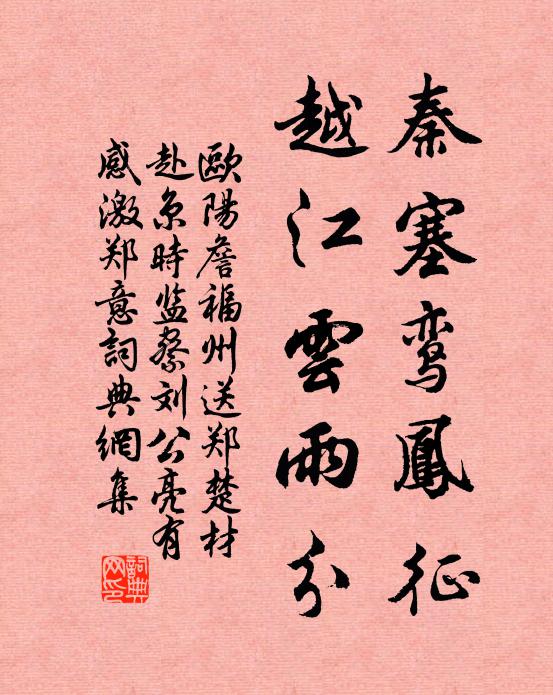 秦塞鸾鳳征
越江雲雨分
歐陽詹福州送郑楚材
赴京時监察刘公亮有
感激郑意詞典網集
詞典
网印